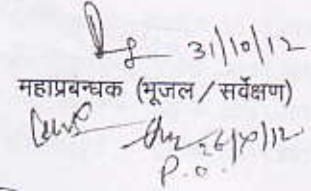 31/10/12
महाप्रबन्धक (भूजल / सर्वेक्षण)
26/10/12
P.O.